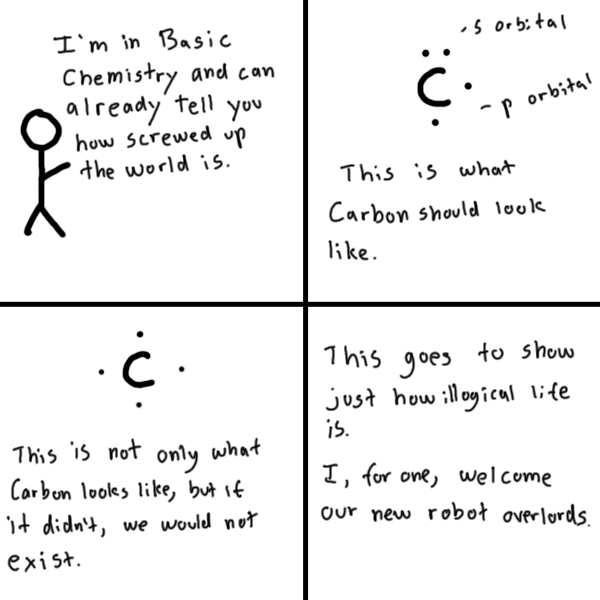 I'm in Basic
Chemistry and can
already tell you
how screwed up
the world is.
s orbital
C
p orbital
This is what
Carbon should look
like.
C
This is not only what
Carbon looks like, but if
it didn't, we would not
exist.
This goes to show
just how illogical life
is.
I, for one, welcome
our new robot overlords.